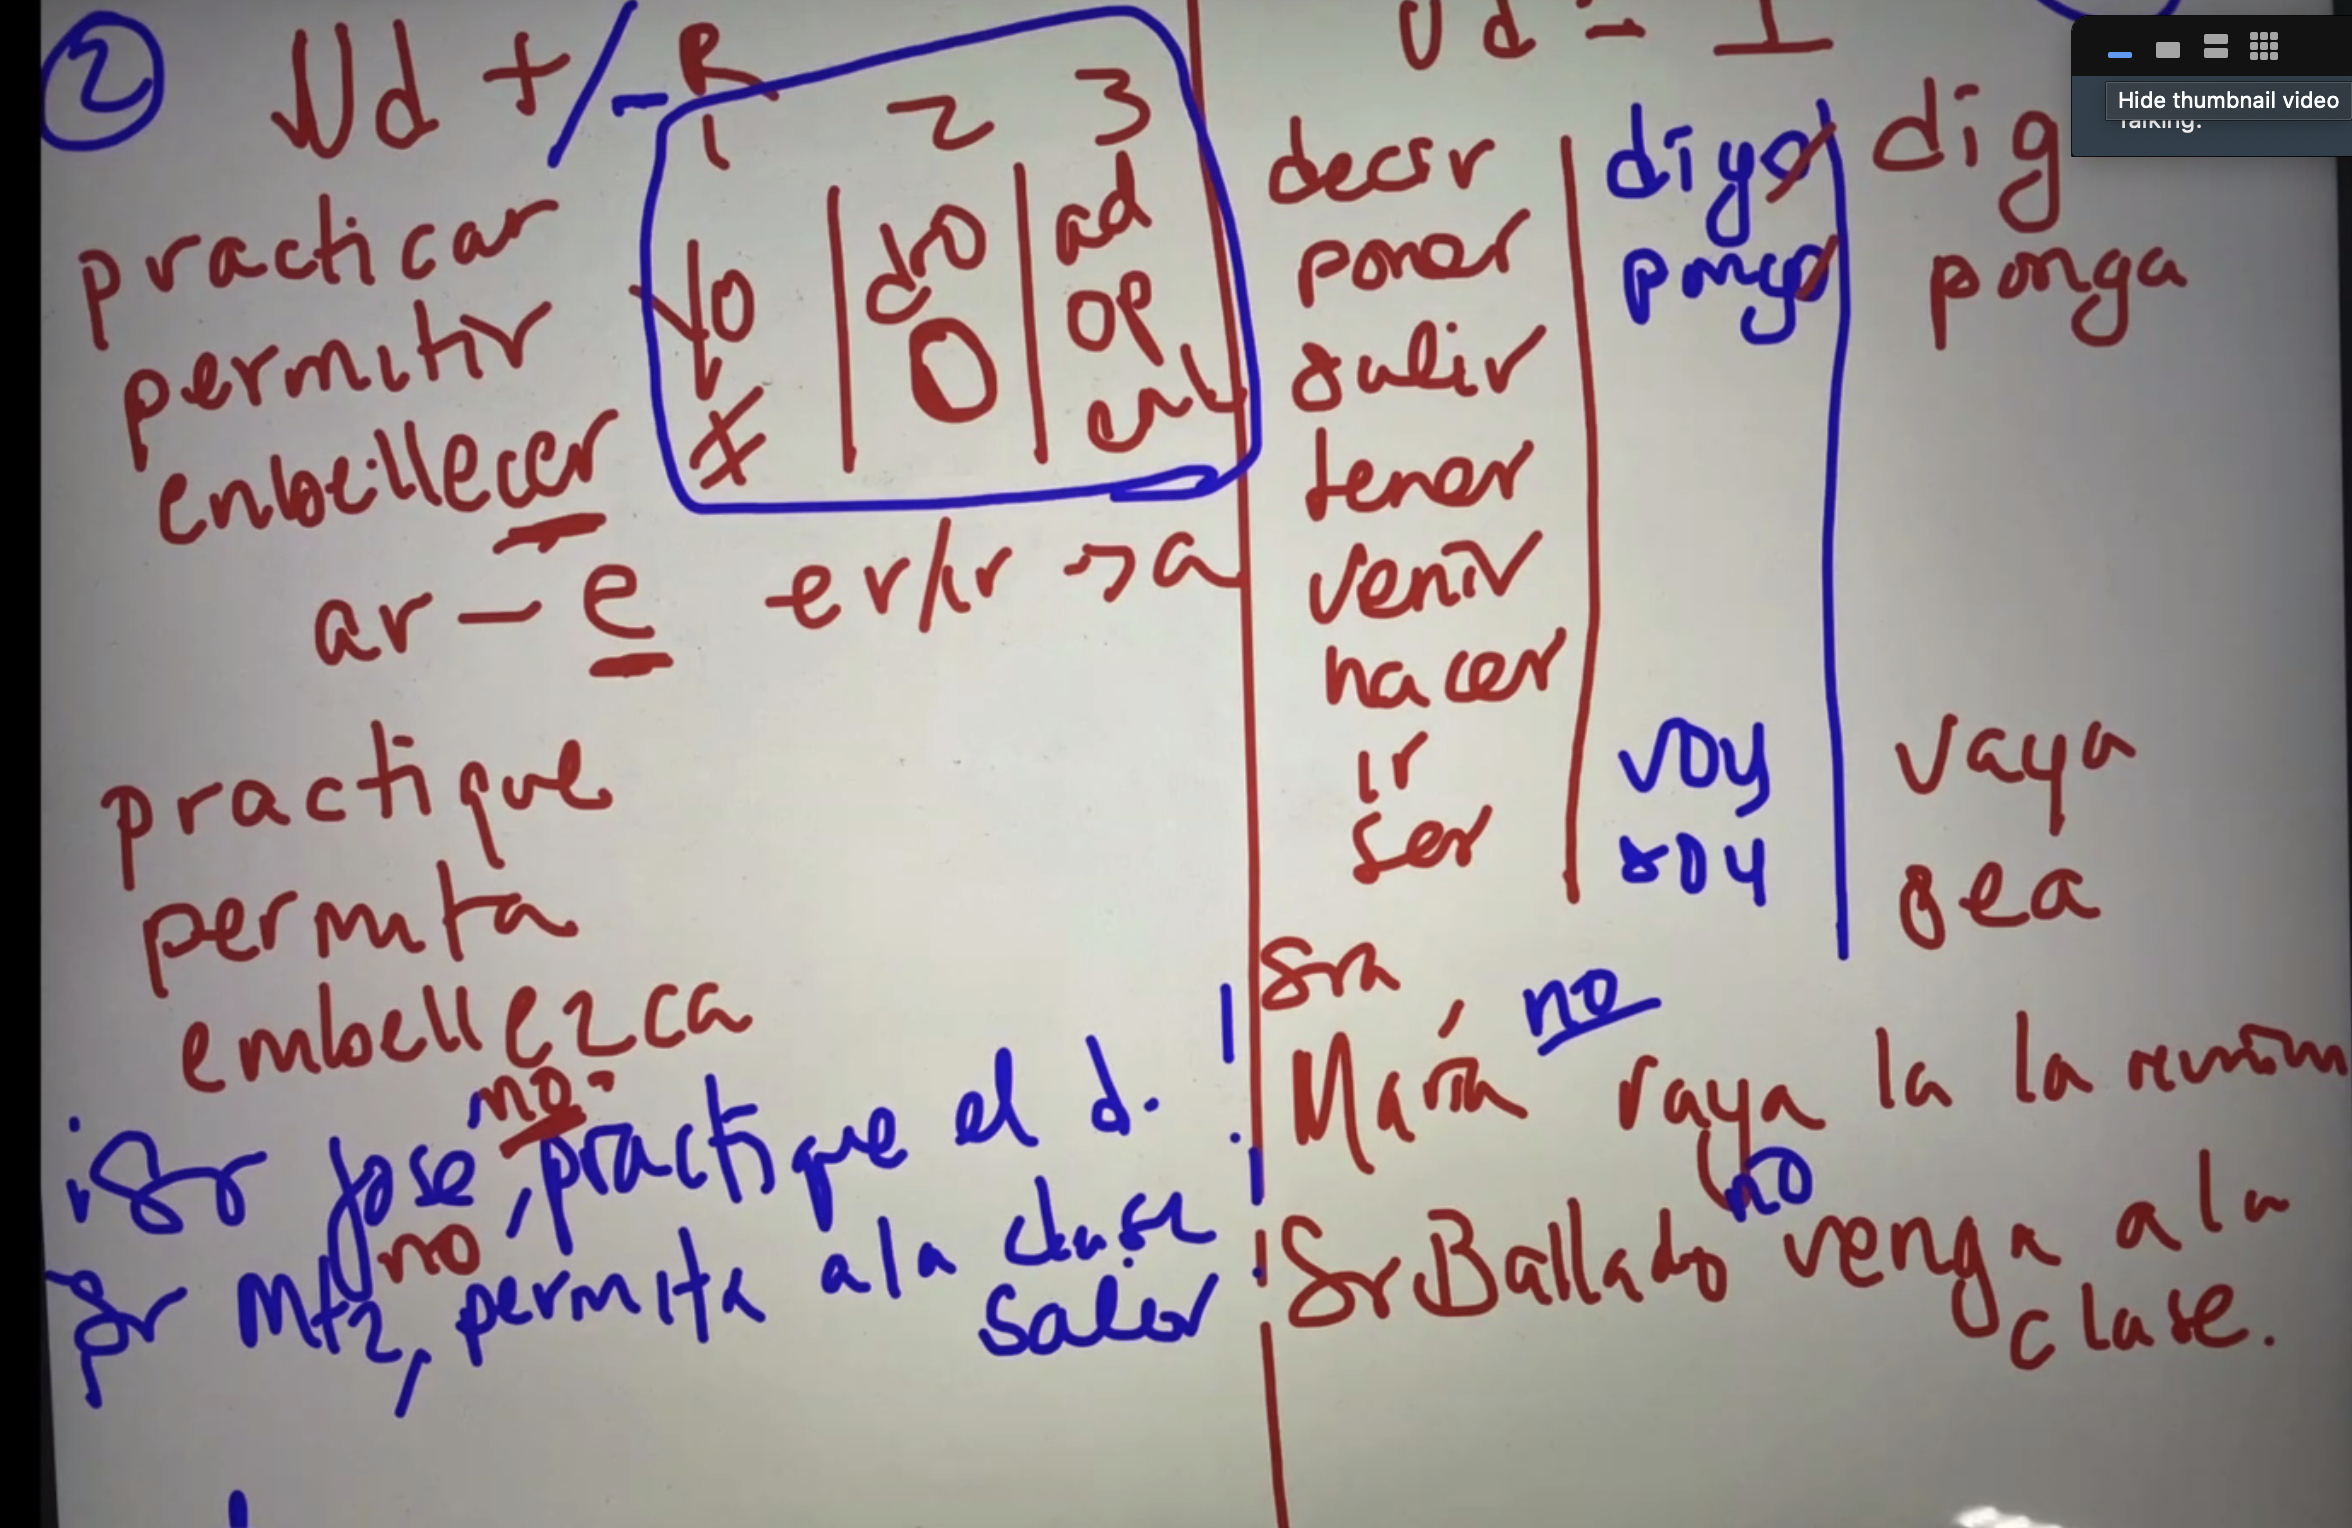 2 Ud +/- R
1 2 3
practicar yo dro ad
permitir ≠ O op
enbeillecer
ar - e er/ir → a
practique
permita
embellezca
no
¡Sr Jose, practique el d. !
no
Sr Mtz, permita a la clase
salir
Ud - I
decir digo dig
poner pongo ponga
salir
tener
venir
hacer
ir voy vaya
ser soy sea
Sra
no
María vaya la la reunión
no
Sr Ballado venga a la
clase.
Hide thumbnail video
Talking: